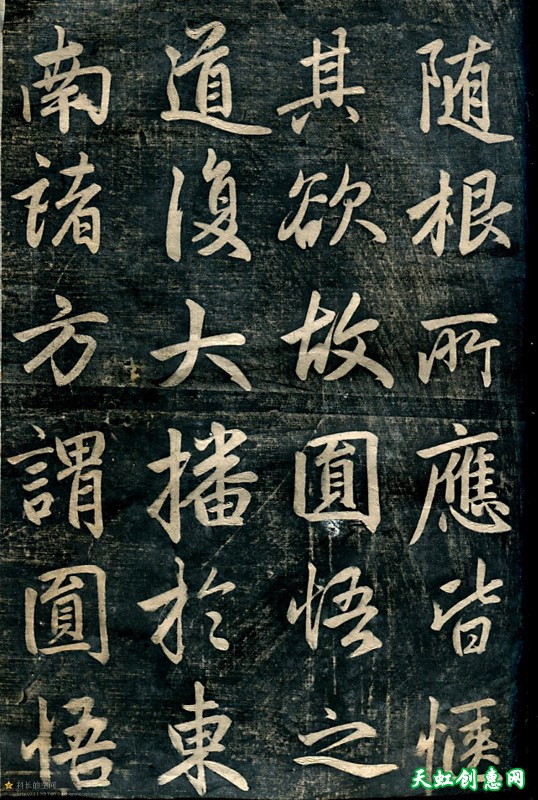 随根所應皆愜
其欲故圓悟之
道復大播於東
南諸方謂圓悟
天虹创惠网
科长的空间